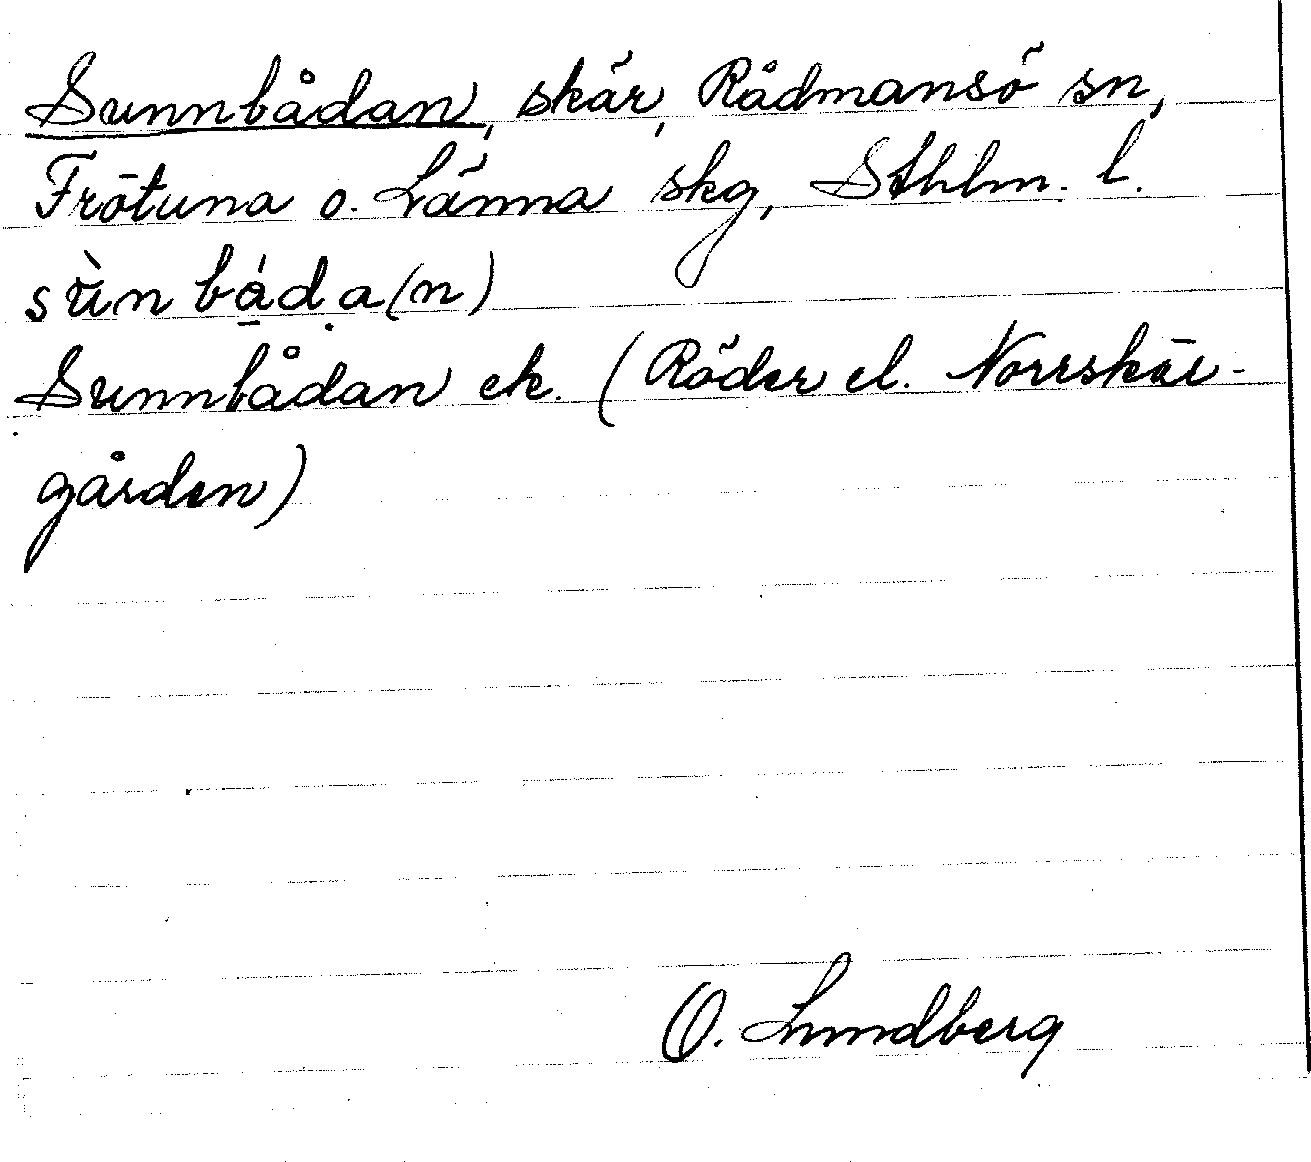 Sunnbådan, skär, Rådmansö sn,
Frötuna o. Länna skg, Sthlm. l.
sùn bǻ̱ḍa(n)
Sunnbådan ek. (Röder el. Norrskär-
gården)
O. Lundberg